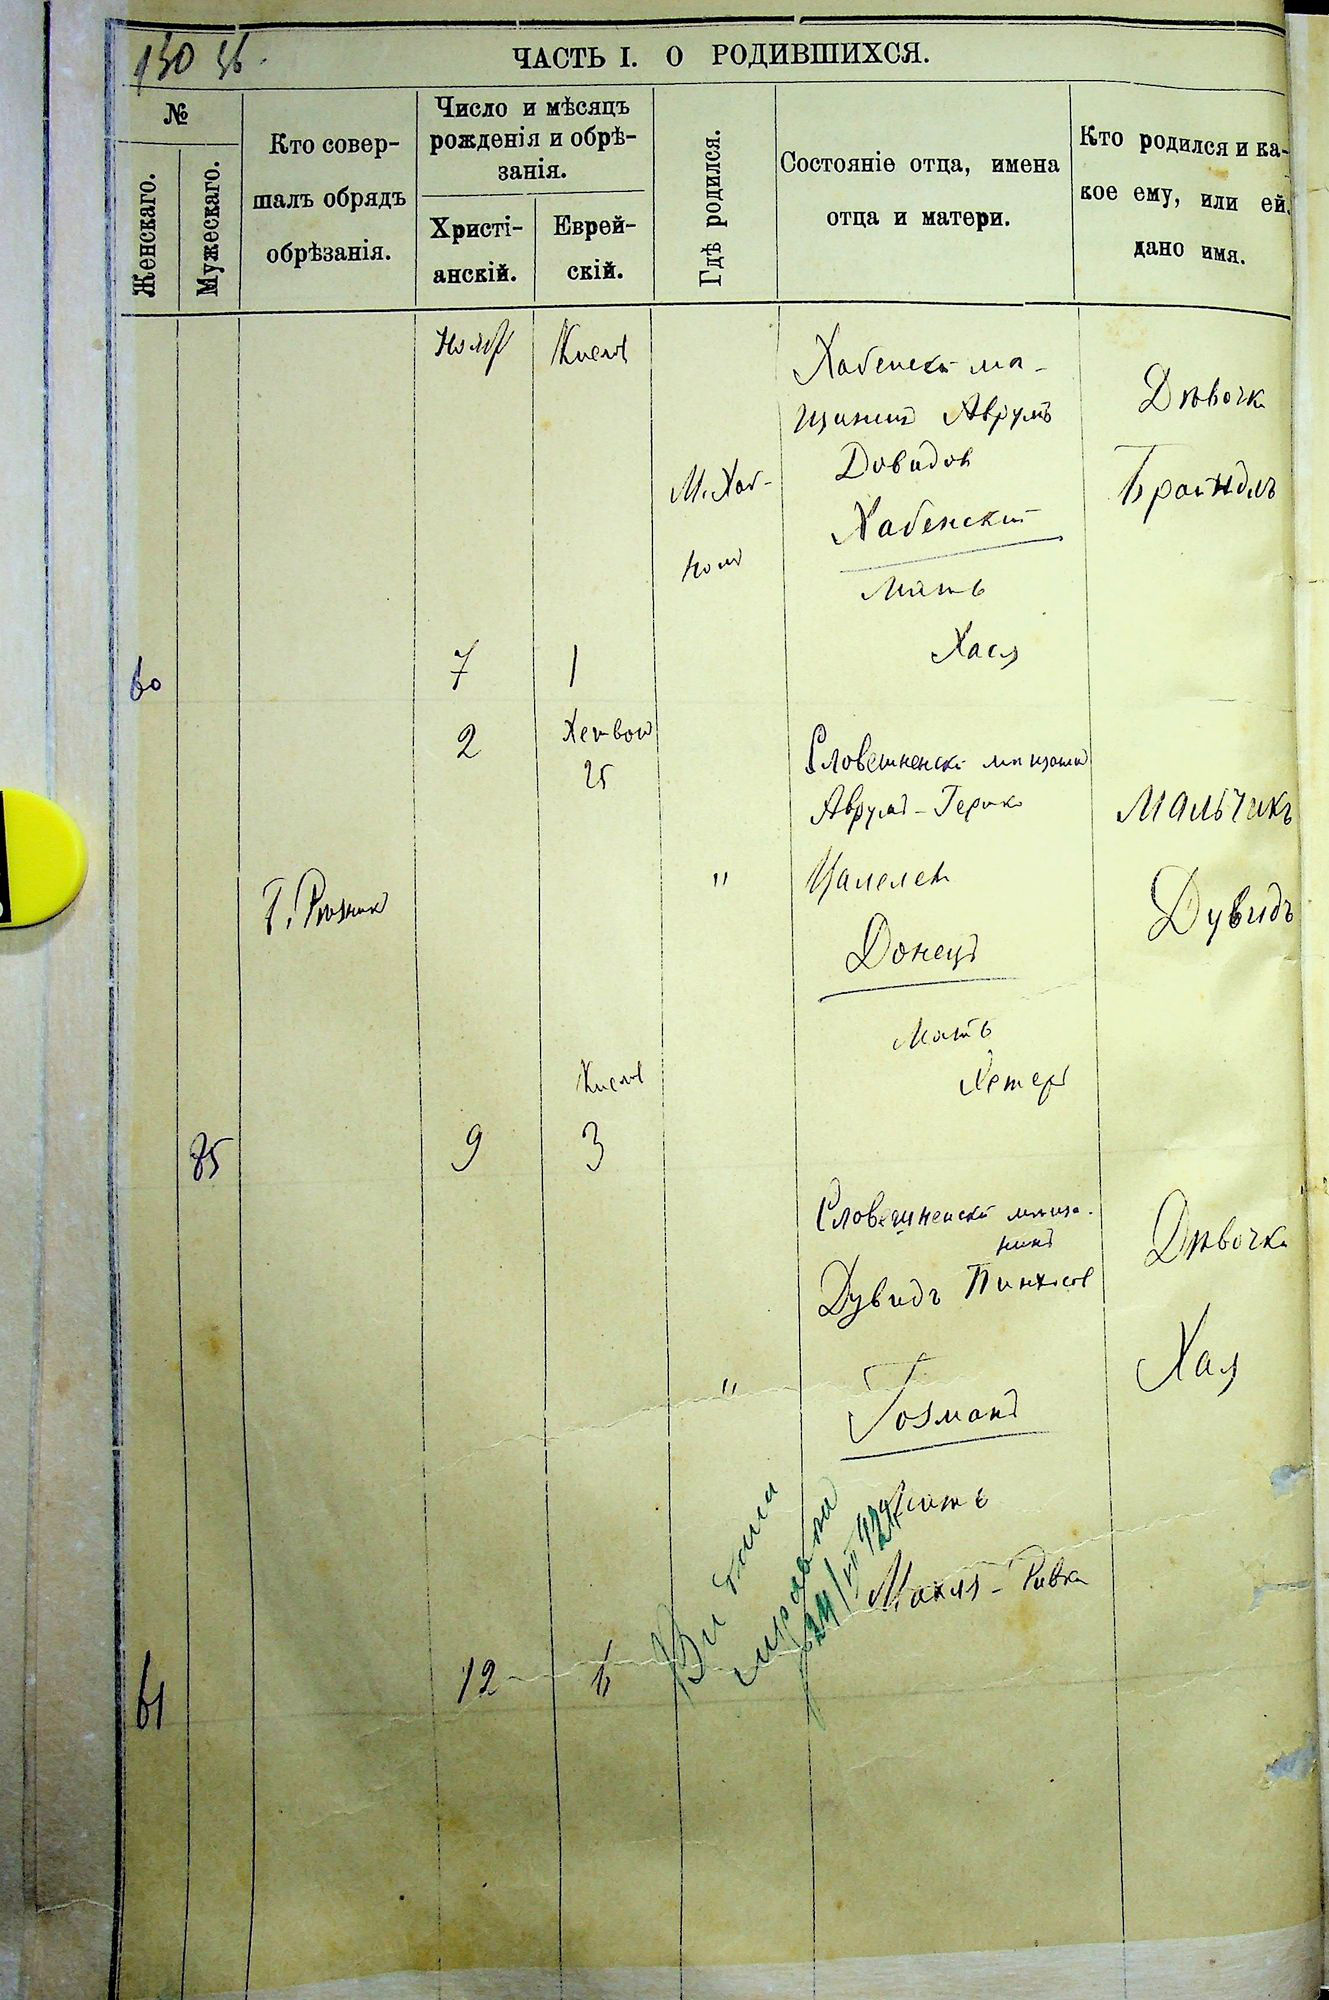 130 об.
ЧАСТЬ I. О РОДИВШИХСЯ.
№
Женскаго.
Мужескаго.
Кто совер-
шалъ обрядъ
обрѣзанія.
Число и мѣсяцъ
рожденія и обрѣ-
занія.
Христі-
анскій.
Еврей-
скій.
Гдѣ родился.
Состояніе отца, имена
отца и матери.
Кто родился и ка-
кое ему, или ей,
дано имя.
60
Нояб
7
Кислев
1
М. Хаб-
ном
Хабенскі мѣ-
щанин Аврумъ
Довидов
Хабенскій
Мать
Хася
Дѣвочка
Браindлъ
85
Г. Резник
2
9
Хешвон
25
Кислев
3
"
Словешненскі мѣщанин
Аврумъ-Герико
Цалелев
Донецъ
Мать
Естеръ
Мальчикъ
Дувидъ
61
12
6
"
Словешненскі мѣща-
нинъ
Дувидъ Пинхасов
Гозманъ
Мать
Махля-Ривка
Дѣвочка
Хая